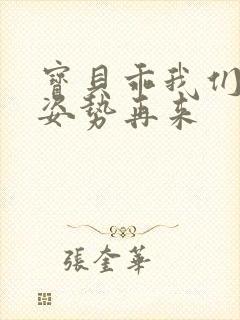 寶貝乖我们
姿势再来
張奎華